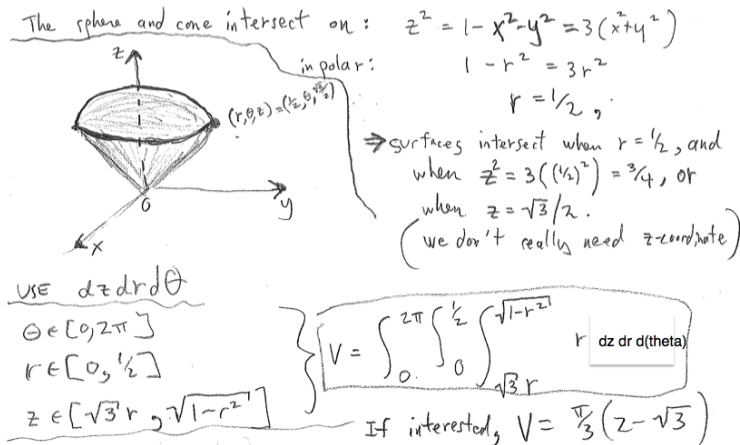 The sphere and cone intersect on: z² = 1 - x² - y² = 3(x² + y²)
in polar: 1 - r² = 3r²
r = 1/2,
z
(r,θ,z) = (1/2, θ, √3/2)
⇒ surfaces intersect when r = 1/2, and
when z² = 3((1/2)²) = 3/4, or
when z = √3/2.
(we don't really need z-coordinate)
0
y
x
USE dz dr dθ
θ ∈ [0, 2π]
r ∈ [0, 1/2]
z ∈ [√3 r, √(1-r²)]
V = ∫_0^{2π} ∫_0^{1/2} ∫_{√3 r}^{√(1-r²)} r dz dr d(theta)
If interested, V = π/3 (2 - √3)